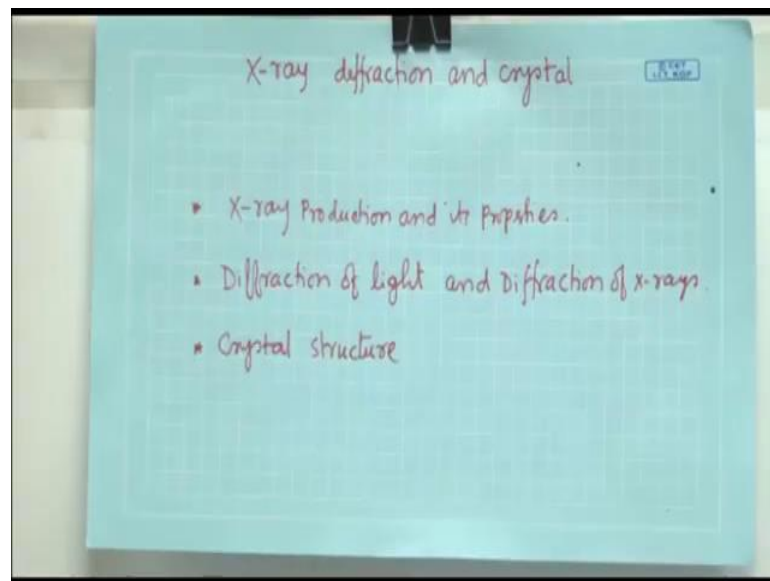 X-ray diffraction and crystal
• X-ray Production and its Properties.
• Diffraction of light and Diffraction of x-rays.
* Crystal structure